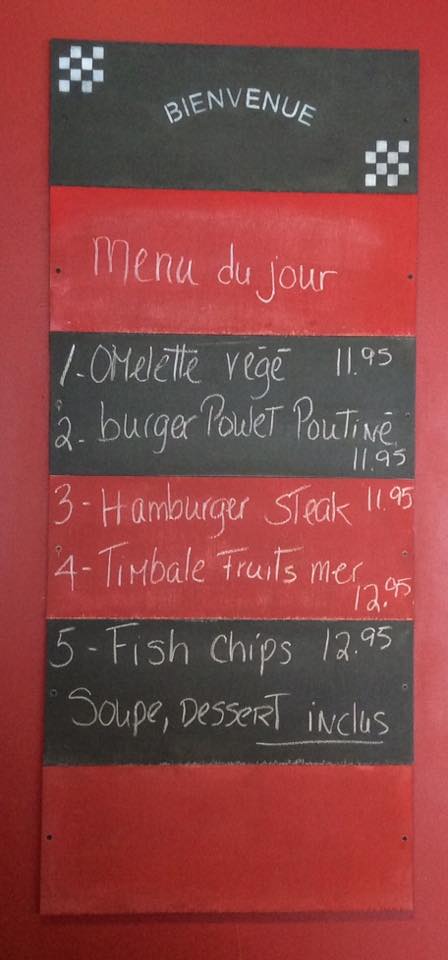 BIENVENUE
Menu du jour
1-Omelette végé 11.95
2- burger Poulet Poutine
11.95
3-Hamburger Steak 11.95
4-Timbale Fruits mer
12.95
5-Fish chips 12.95
Soupe, Dessert inclus